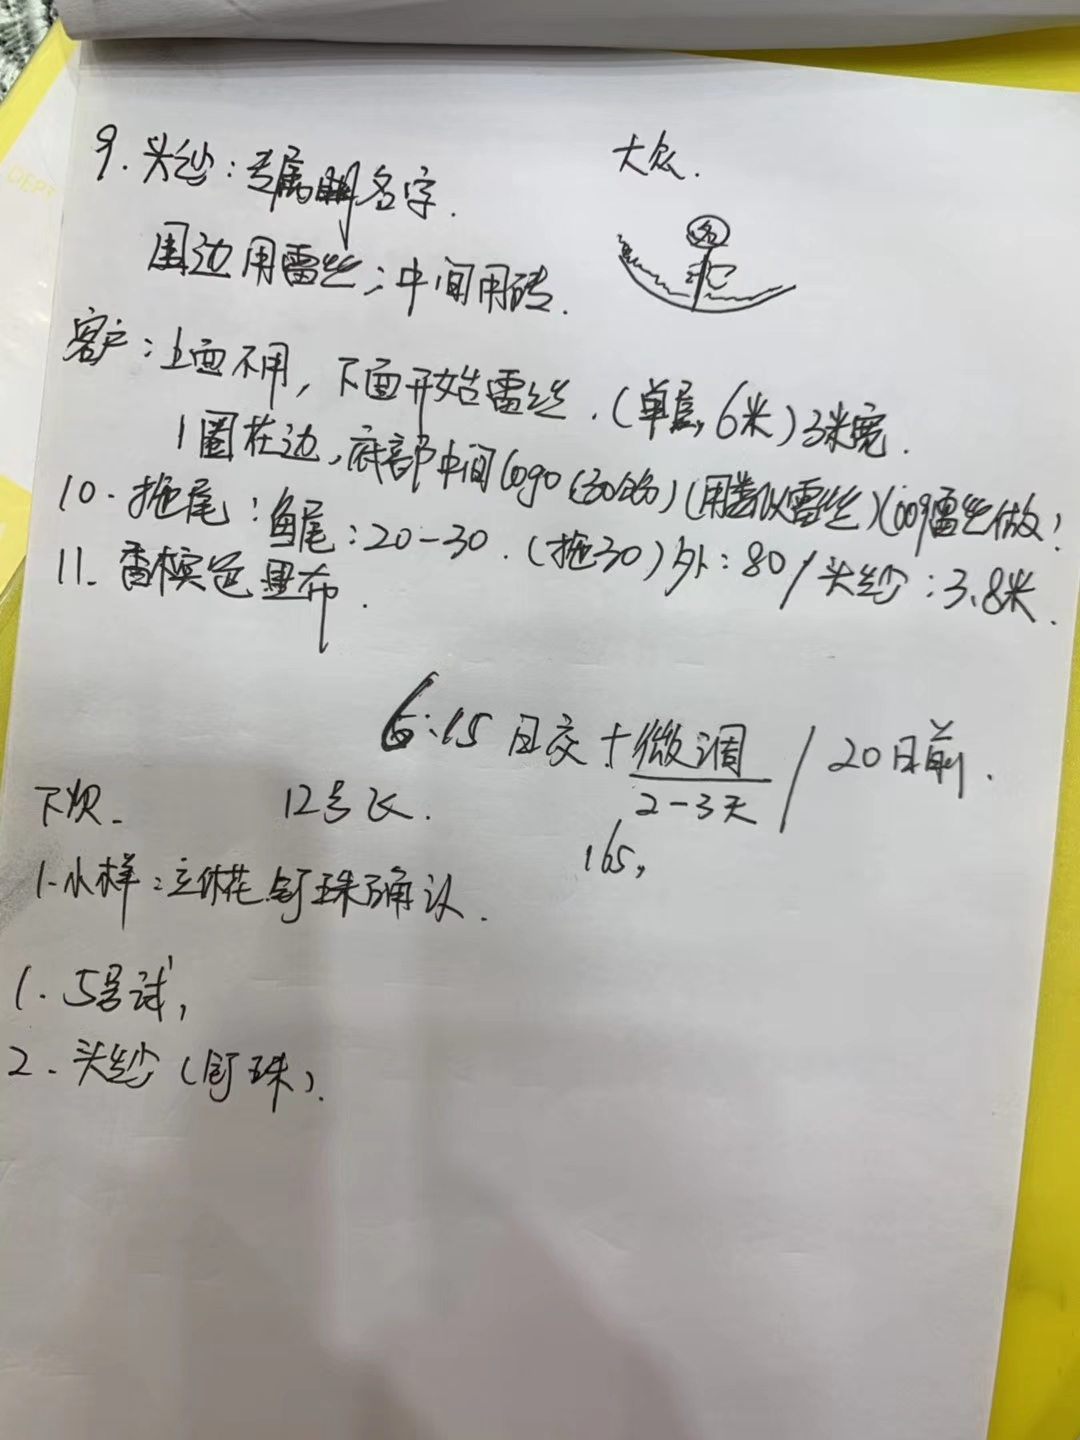 9. 头纱：专属 名字.
大众.
名
围边用雷丝；中间用砖.
客户：上面不用，下面开始雷丝.（单层，6米）3米宽.
1圈花边，底部中间logo（30公分）（用类似雷丝）logo雷丝做！
10. 拖尾：鱼尾：20-30.（拖30）外：80/头纱：3.8米.
11. 香槟色里布.
6.15日交+微调/20日前.
2-3天
下次. 12号飞.
165,
1. 小样：立体花.钉珠确认.
1. 5号试,
2. 头纱（钉珠）.